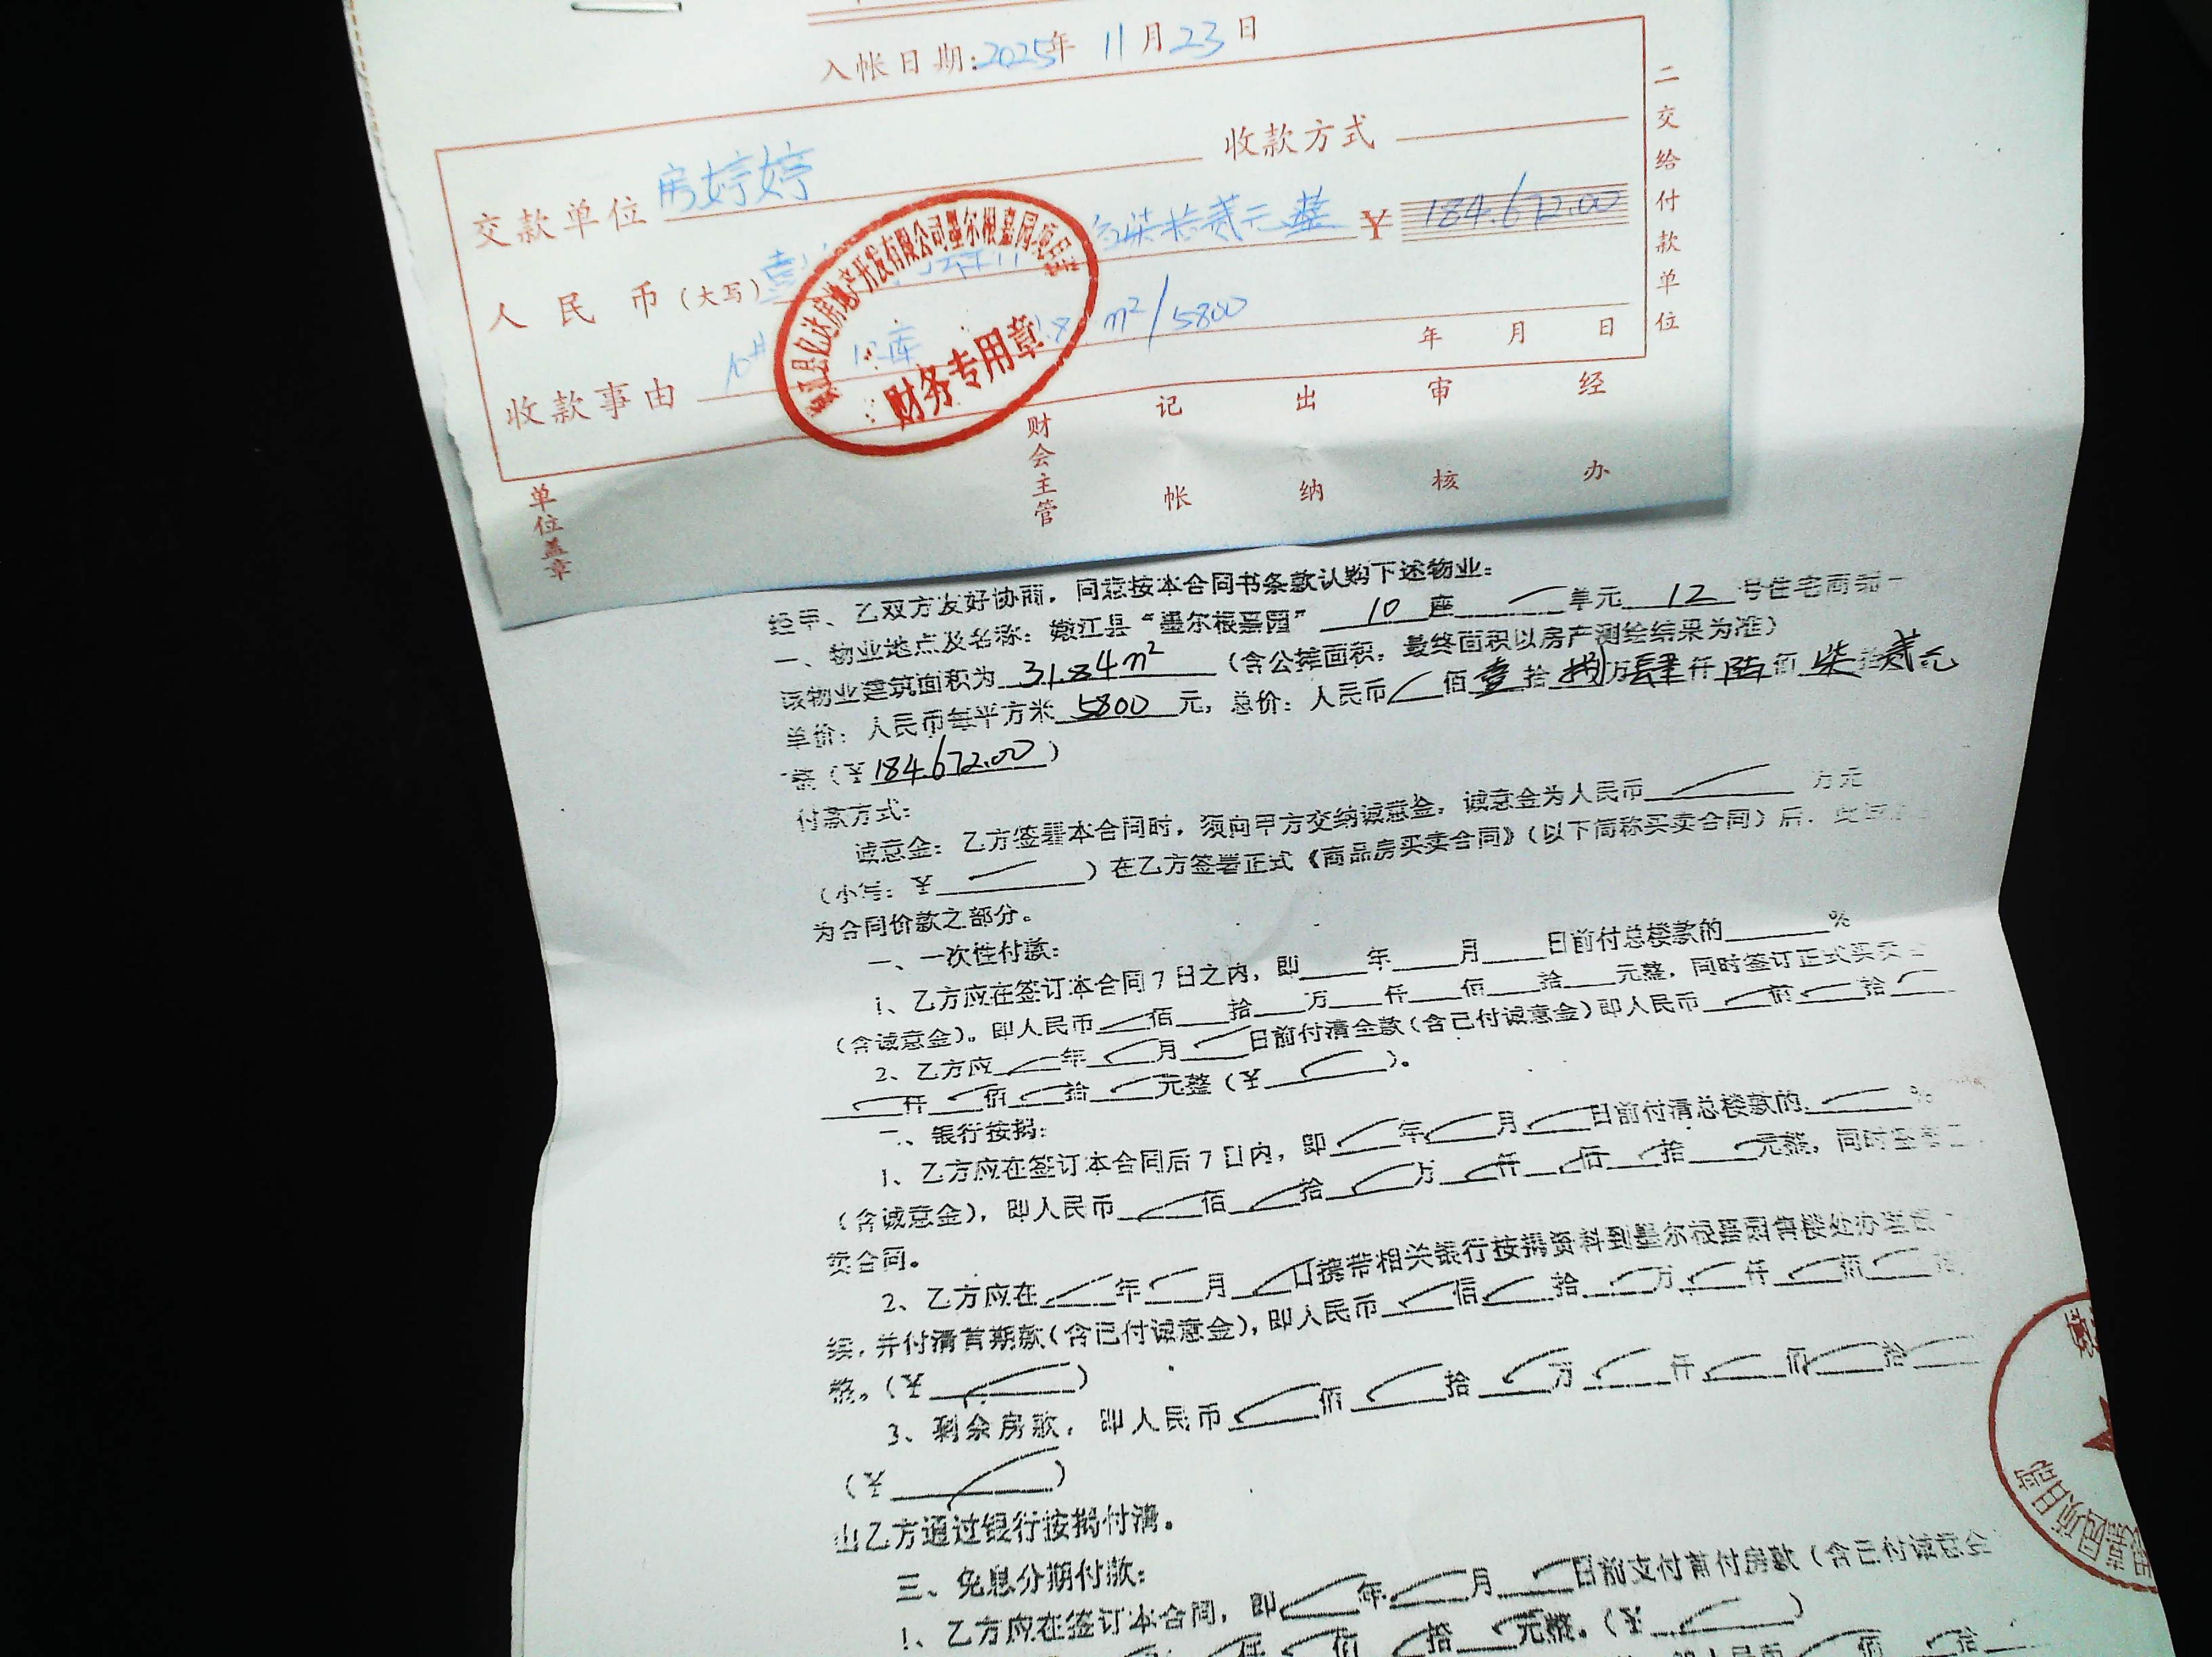 入帐日期:2025年 11月23日
交款单位 房婷婷 收款方式
人民币(大写) 柒拾贰元整 ¥ 184.672.00
收款事由 10# 库 m²/5800
年 月 日
二交给付款单位
嫩江县亿达房地产开发有限公司墨尔根嘉园项目部
财务专用章
单位盖章 财会主管 记帐 出纳 审核 经办
经甲、乙双方友好协商,同意按本合同书条款认购下述物业:
一、物业地点及名称:嫩江县“墨尔根嘉园” 10 座 单元 12 号住宅商铺
该物业建筑面积为 31.84m² (含公摊面积,最终面积以房产测绘结果为准)
单价:人民币每平方米 5800 元,总价:人民币 佰 壹 拾 捌 万 肆 仟 陆 佰 柒 拾 贰元
整(¥184.672.00)
付款方式:
诚意金:乙方签署本合同时,须向甲方交纳诚意金,诚意金为人民币 万元
(小写:¥ )在乙方签署正式《商品房买卖合同》(以下简称买卖合同)后,此
为合同价款之部分。
一、一次性付款:
1、乙方应在签订本合同7日之内,即 年 月 日前付总楼款的 %
(含诚意金)。即人民币 佰 拾 万 仟 佰 拾 元整,同时签订正式买卖
2、乙方应 年 月 日前付清全款(含已付诚意金)即人民币 佰 拾
仟 佰 拾 元整(¥ )。
二、银行按揭:
1、乙方应在签订本合同后7日内,即 年 月 日前付清总楼款的 %
(含诚意金),即人民币 佰 拾 万 仟 佰 拾 元整,同时
卖合同。
2、乙方应在 年 月 日携带相关银行按揭资料到墨尔根嘉园售楼处办理
续,并付清首期款(含已付诚意金),即人民币 佰 拾 万 仟 佰 拾
整。(¥ )
3、剩余房款,即人民币 佰 拾 万 仟 佰 拾
(¥ )
由乙方通过银行按揭付清。
三、免息分期付款:
1、乙方应在签订本合同,即 年 月 日前支付首付房款(含已付诚意金
仟 佰 拾 元整。(¥ )
嘉园项目部